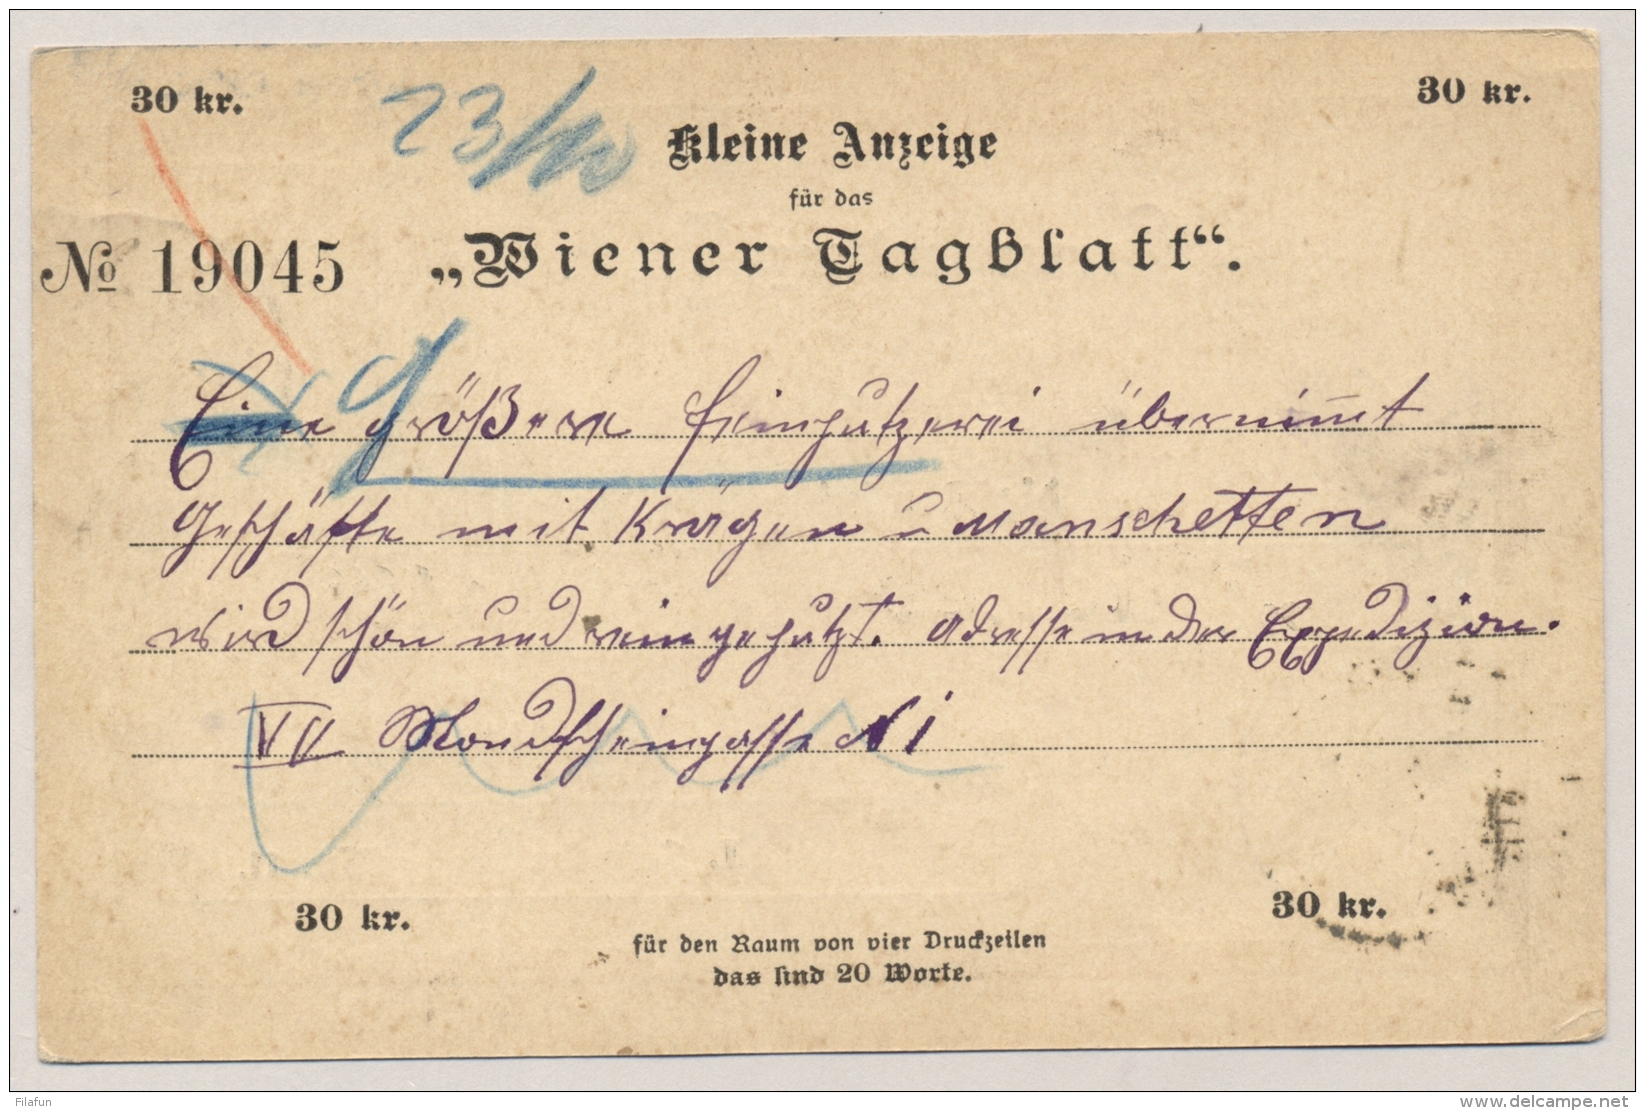 30 kr.
30 kr.
23/10
Kleine Anzeige
für das
№ 19045 „Wiener Tagblatt“.
Eine größere Feinputzerei übernimmt
Geschäfte mit Krägen u Manschetten
wird schön und rein geputzt. Adresse in der Expedizion.
VII Mondscheingasse N 1
30 kr.
30 kr.
für den Raum von vier Druckzeilen
das sind 20 Worte.
Filafun
www.delcampe.net